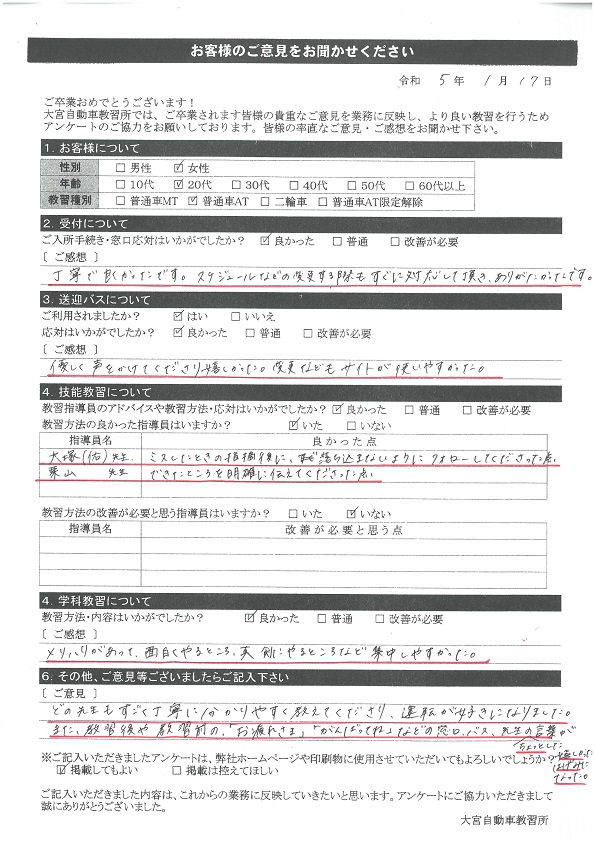 お客様のご意見をお聞かせください
令和 5 年 1 月 17 日
ご卒業おめでとうございます！
大宮自動車教習所では、ご卒業されます皆様の貴重なご意見を業務に反映し、より良い教習を行うため
アンケートのご協力をお願いしております。皆様の率直なご意見・ご感想をお聞かせ下さい。
1. お客様について
性別 □ 男性 ☑ 女性
年齢 □ 10代 ☑ 20代 □ 30代 □ 40代 □ 50代 □ 60代以上
教習種別 □ 普通車MT ☑ 普通車AT □ 二輪車 □ 普通車AT限定解除
2. 受付について
ご入所手続き・窓口応対はいかがでしたか？ ☑ 良かった □ 普通 □ 改善が必要
〔 ご感想 〕
丁寧で良かったです。スケジュールなどの変更する際もすぐに対応して頂き、ありがたかったです。
3. 送迎バスについて
ご利用されましたか？ ☑ はい □ いいえ
応対はいかがでしたか？ ☑ 良かった □ 普通 □ 改善が必要
〔 ご感想 〕
優しく声をかけてくださり嬉しかった。変更などもサイトが使いやすかった。
4. 技能教習について
教習指導員のアドバイスや教習方法・応対はいかがでしたか？ ☑ 良かった □ 普通 □ 改善が必要
教習方法の良かった指導員はいますか？ ☑ いた □ いない
指導員名 良かった点
大塚(佑)先生 ミスしたときの指摘後に、落ち込まないようにフォローしてくださった点。
栗山 先生 できたところを明確に伝えてくださった点。
教習方法の改善が必要と思う指導員はいますか？ □ いた ☑ いない
指導員名 改善が必要と思う点
4. 学科教習について
教習方法・内容はいかがでしたか？ ☑ 良かった □ 普通 □ 改善が必要
〔 ご感想 〕
メリハリがあって、面白くやるところ、真剣にやるところなど集中しやすかった。
6. その他、ご意見等ございましたらご記入下さい
〔 ご意見 〕
どの先生もすごく丁寧に分かりやすく教えてくださり、運転が好きになりました。
また、教習後や教習前の、「お疲れさま」「がんばってね」などの窓口、バス、先生の言葉が
ちょっとした
嬉しかった
はげみに
なった。
※ご記入いただきましたアンケートは、弊社ホームページや印刷物に使用させていただいてもよろしいでしょうか？
☑ 掲載してもよい □ 掲載は控えてほしい
ご記入いただきました内容は、これからの業務に反映していきたいと思います。アンケートにご協力いただきまして
誠にありがとうございました。
大宮自動車教習所